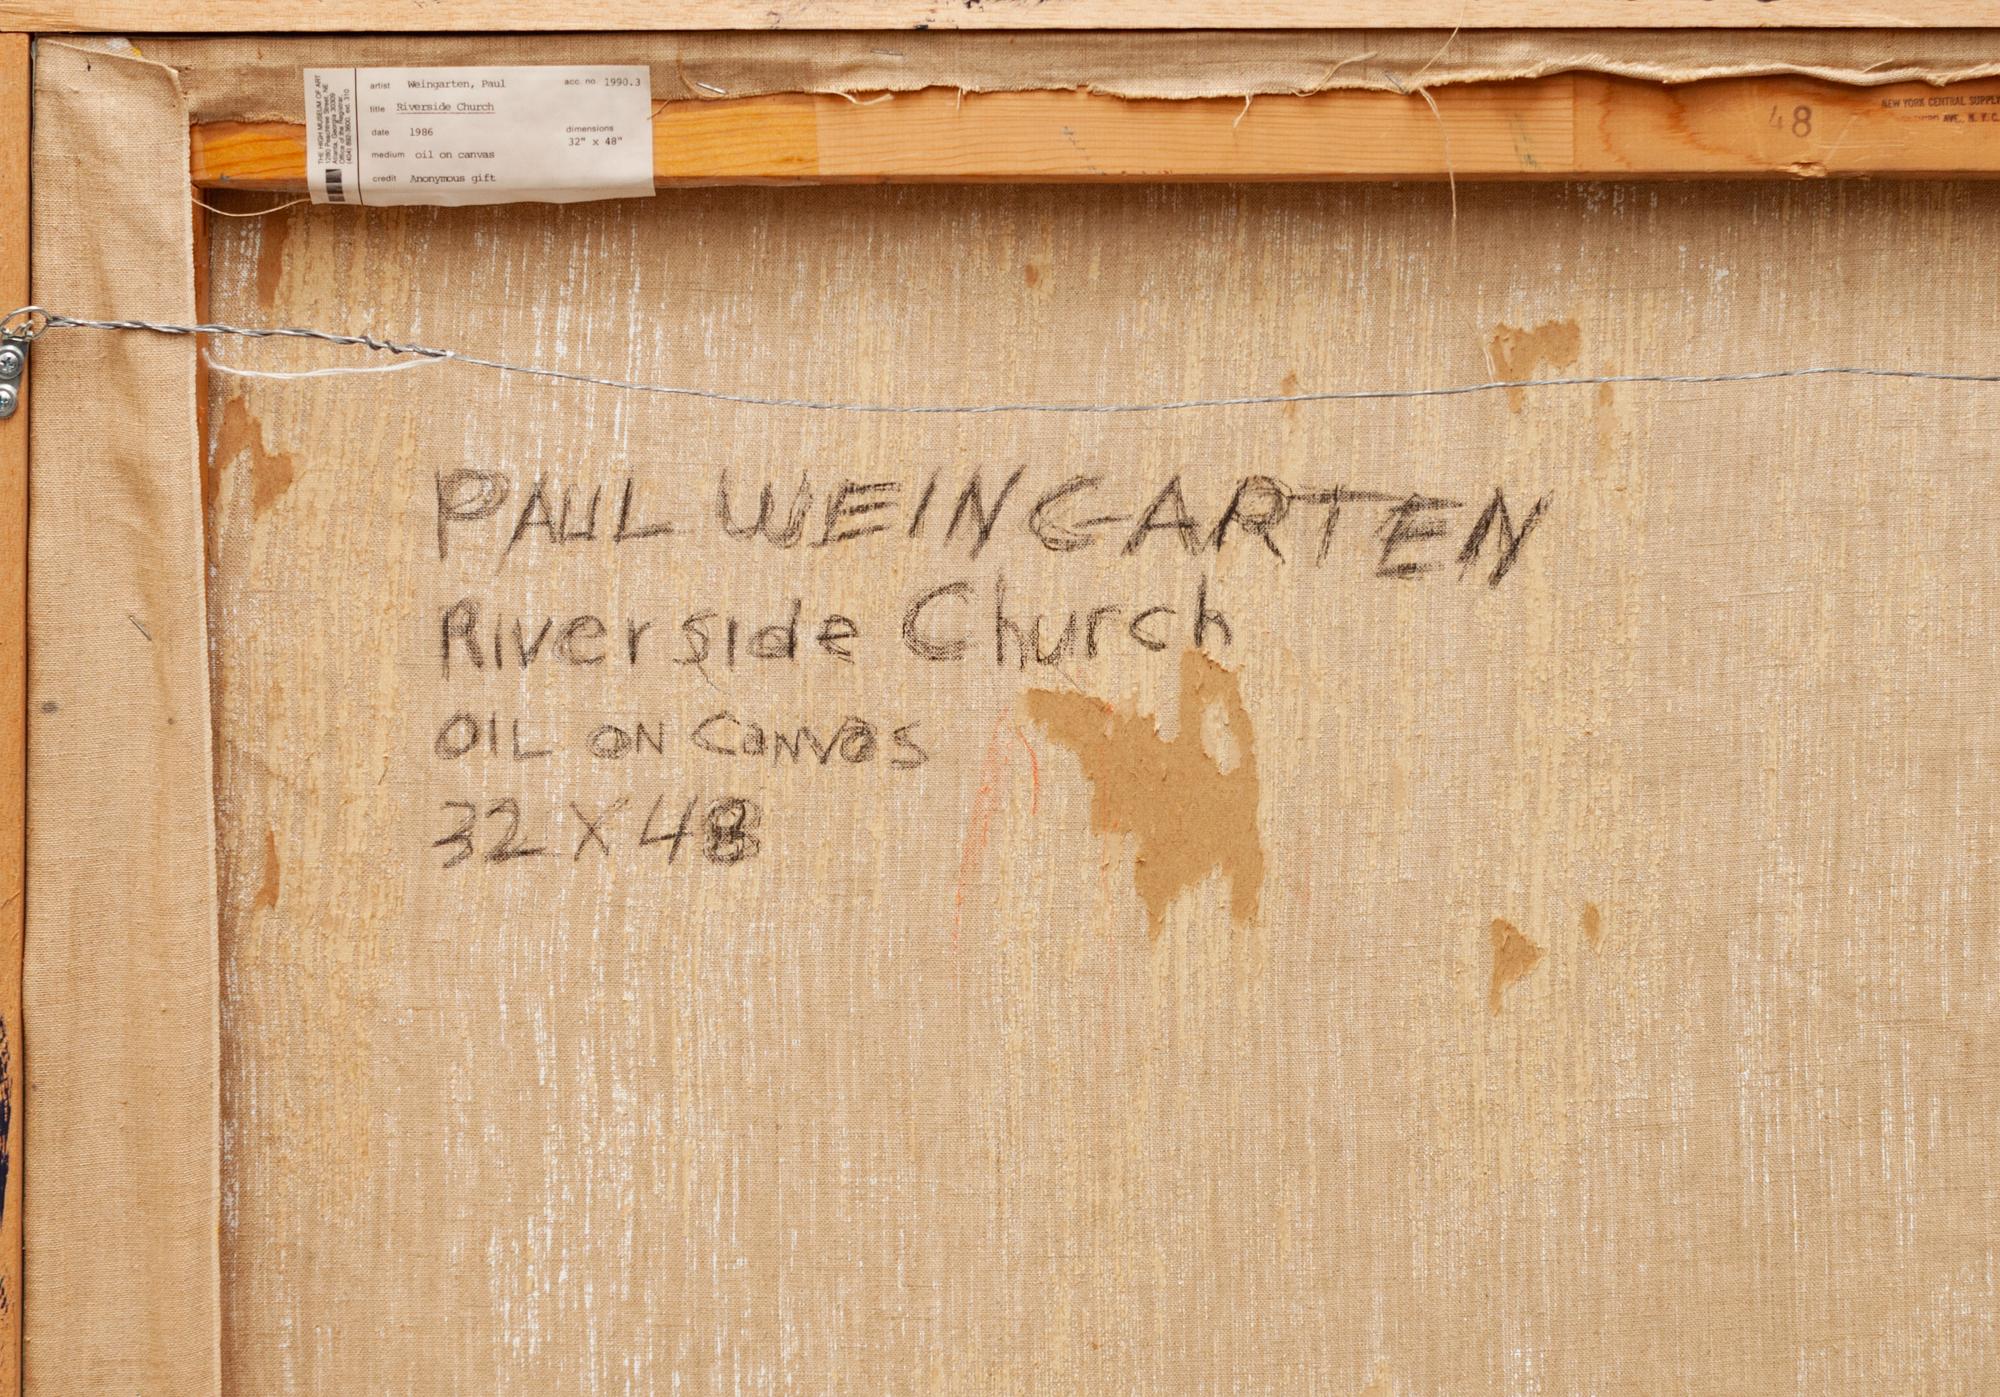 THE HIGH MUSEUM OF ART
1280 Peachtree Street, NE
Atlanta, Georgia 30309
Office of the Registrar
(404) 892-3600, ext. 310
artist Weingarten, Paul acc. no. 1990.3
title Riverside Church
date 1986 dimensions
32" x 48"
medium oil on canvas
credit Anonymous gift
48
NEW YORK CENTRAL SUPPLY
AVE., N.Y.C.
PAUL WEINGARTEN
Riverside Church
OIL ON CANVaS
32 X 48